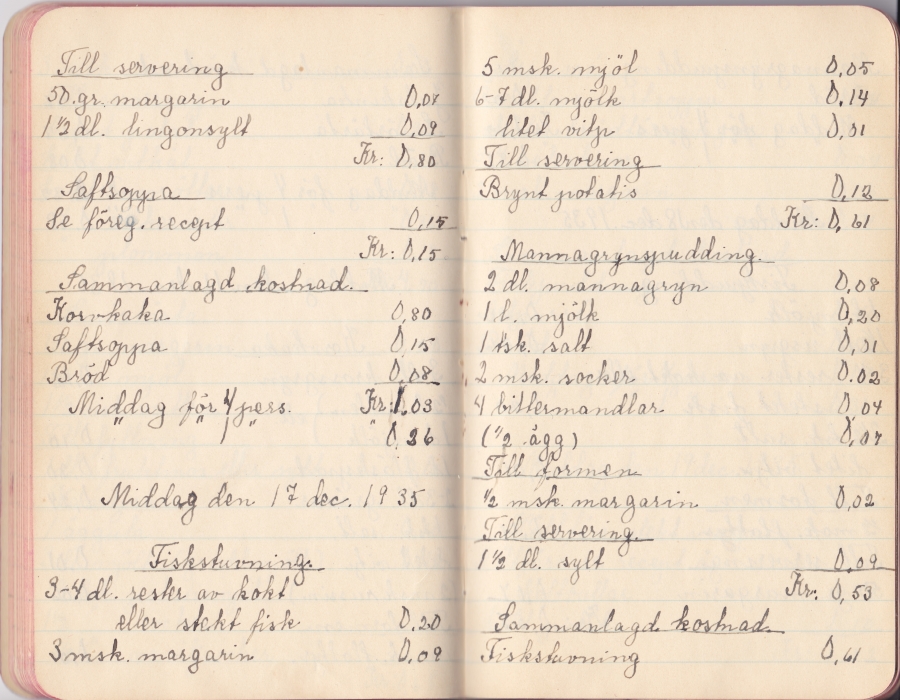 Till servering
50.gr. margarin 0,07
1 1/2 dl. lingonsylt 0,09
Kr: 0,80
Saftsoppa
Se föreg. recept 0,15
Kr: 0,15
Sammanlagd kostnad.
Korvkaka 0,80
Saftsoppa 0,15
Bröd 0,08
Middag för 4 pers. Kr: 1,03
" " 1 " " 0,26
Middag den 17 dec. 1935
Fiskstuvning.
3-4 dl. rester av kokt
eller stekt fisk 0.20
3 msk. margarin 0,09
5 msk. mjöl 0,05
6-7 dl. mjölk 0,14
litet vitp 0,01
Till servering
Brynt potatis 0,12
Kr: 0,61
Mannagrynspudding.
2 dl. mannagryn 0,08
1 l. mjölk 0,20
1 tsk. salt 0,01
2 msk. socker 0.02
4 bittermandlar 0,04
(1/2 ägg) 0,07
Till formen
1/2 msk. margarin 0,02
Till servering.
1 1/2 dl. sylt 0,09
Kr: 0,53
Sammanlagd kostnad.
Fiskstuvning 0,61